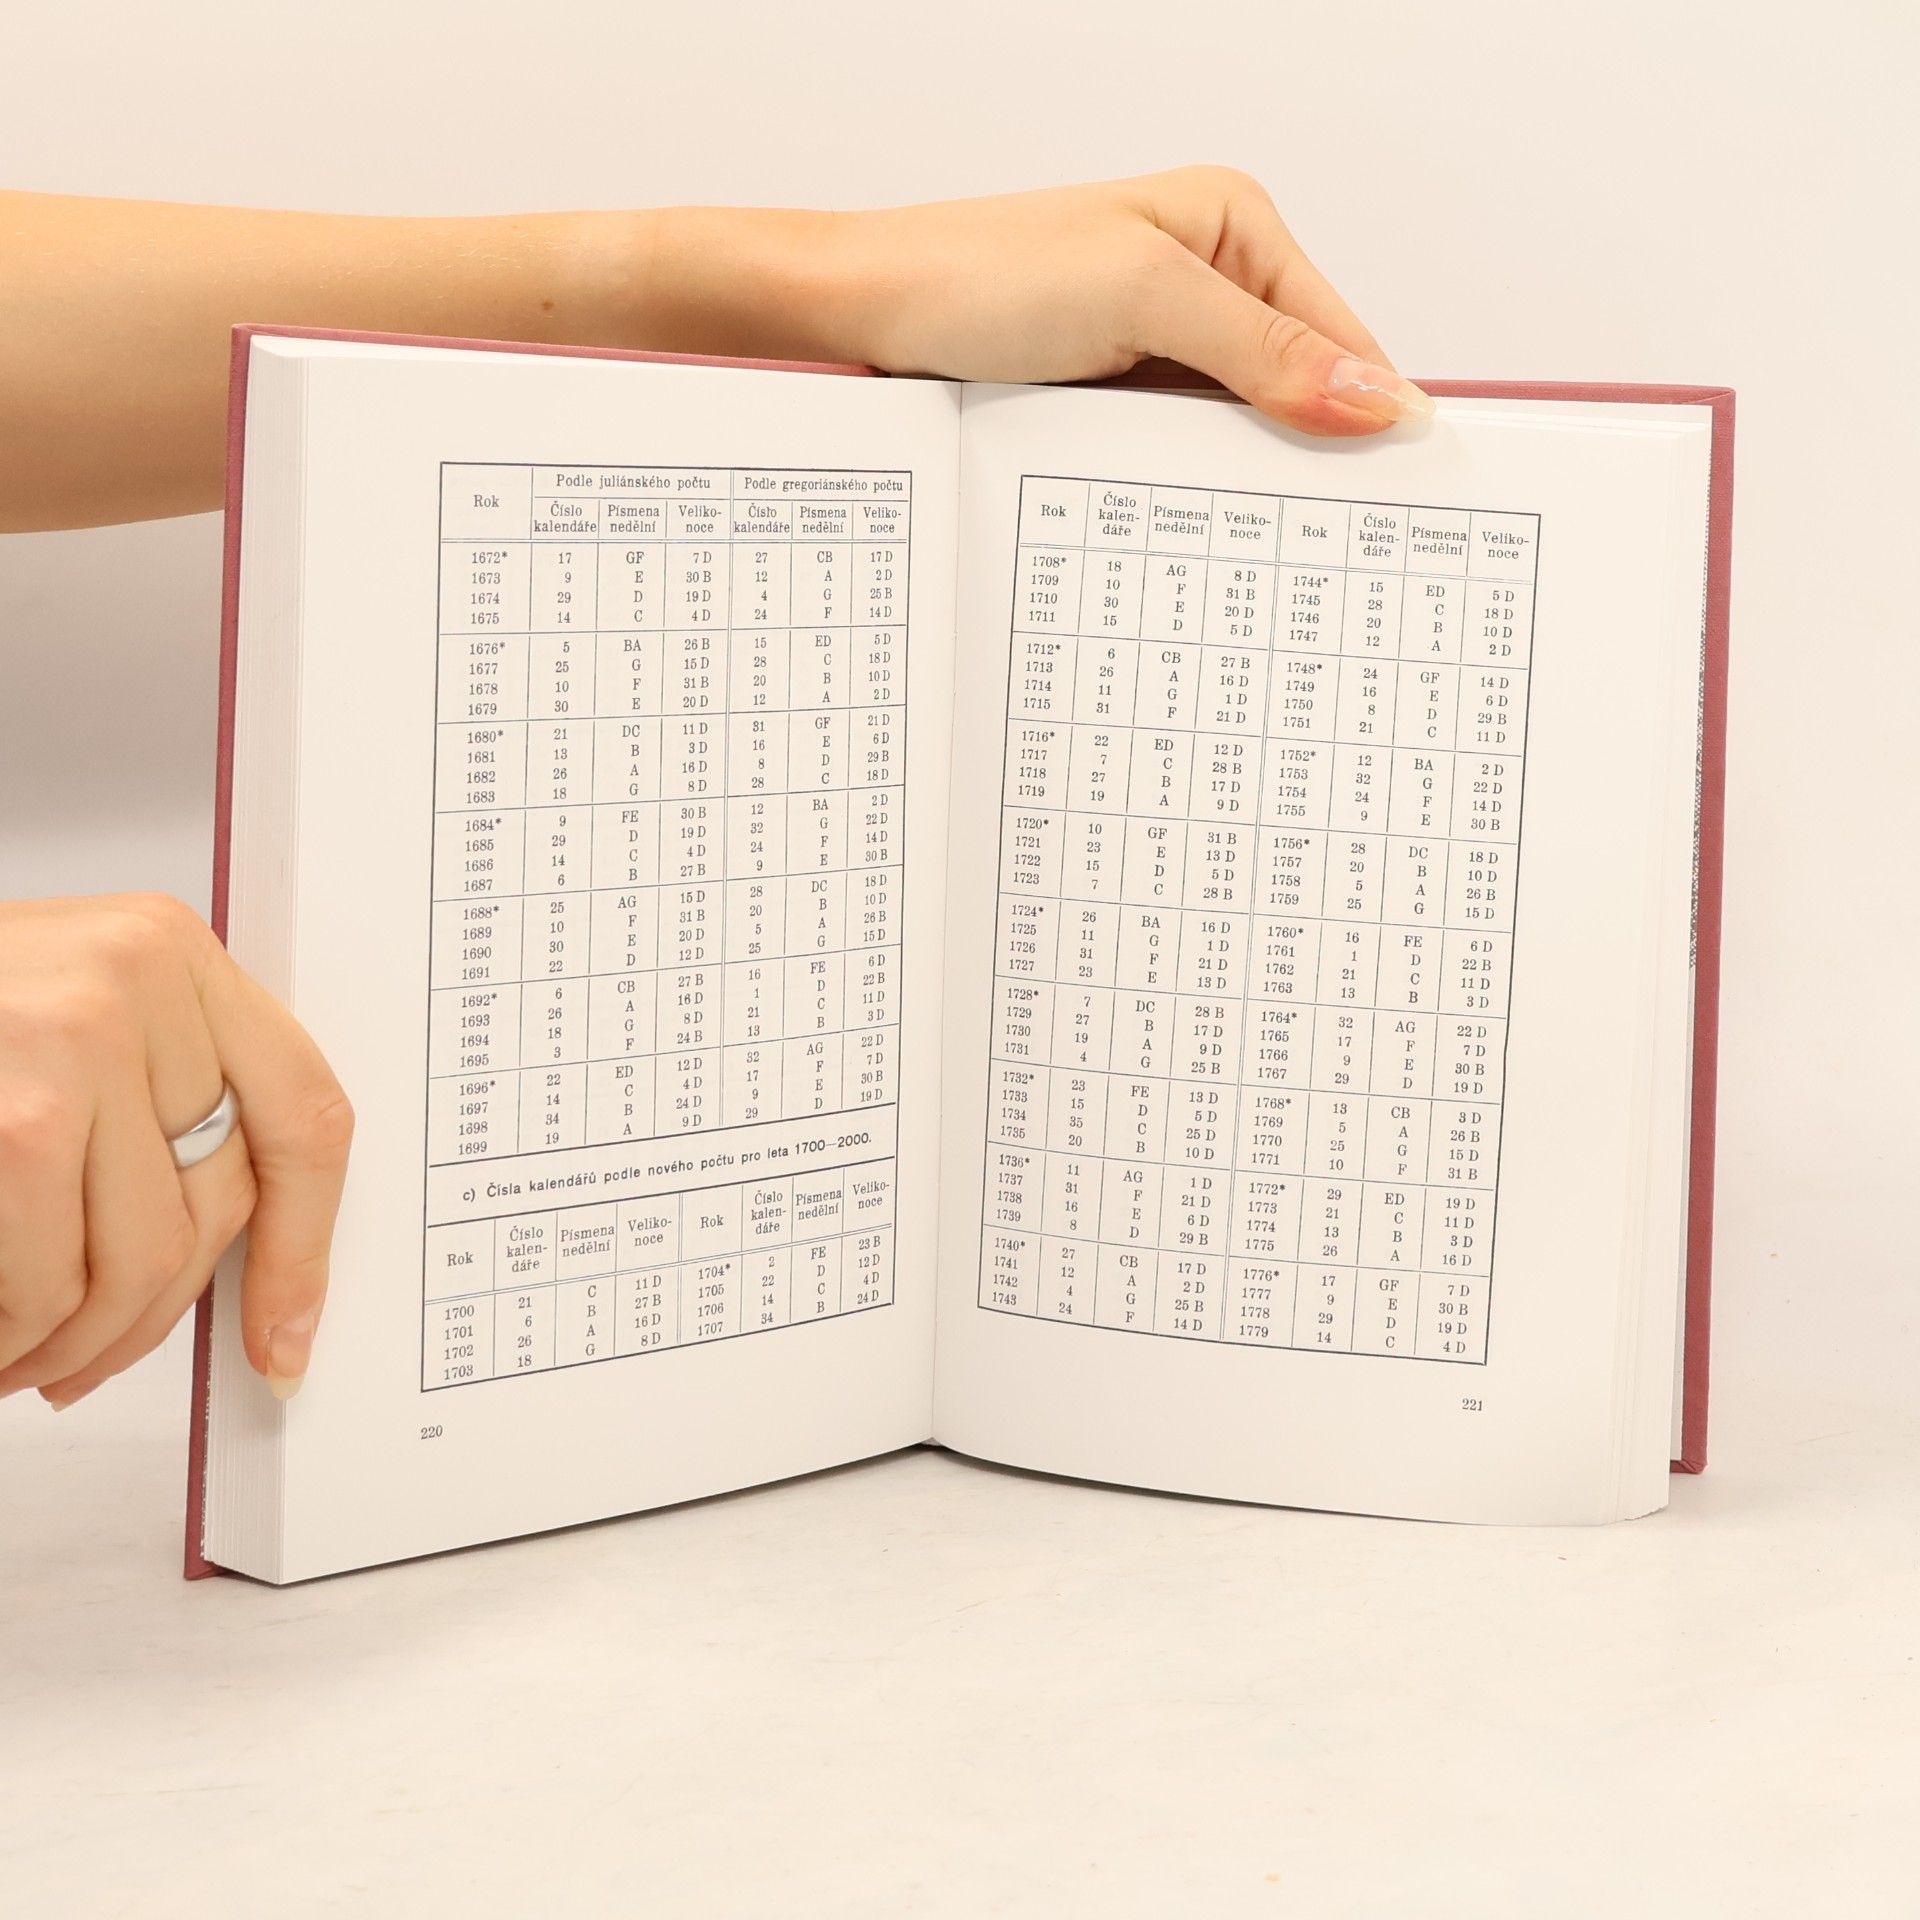 Rok Podle juliánského počtu Podle gregoriánského počtu
Číslo kalendáře Písmena nedělní Veliko-noce Číslo kalendáře Písmena nedělní Veliko-noce
1672* 17 GF 7 D 27 CB 17 D
1673 9 E 30 B 12 A 2 D
1674 29 D 19 D 4 G 25 B
1675 14 C 4 D 24 F 14 D
1676* 5 BA 26 B 15 ED 5 D
1677 25 G 15 D 28 C 18 D
1678 10 F 31 B 20 B 10 D
1679 30 E 20 D 12 A 2 D
1680* 21 DC 11 D 31 GF 21 D
1681 13 B 3 D 16 E 6 D
1682 26 A 16 D 8 D 29 B
1683 18 G 8 D 28 C 18 D
1684* 9 FE 30 B 12 BA 2 D
1685 29 D 19 D 32 G 22 D
1686 14 C 4 D 24 F 14 D
1687 6 B 27 B 9 E 30 B
1688* 25 AG 15 D 28 DC 18 D
1689 10 F 31 B 20 B 10 D
1690 30 E 20 D 5 A 26 B
1691 22 D 12 D 25 G 15 D
1692* 6 CB 27 B 16 FE 6 D
1693 26 A 16 D 1 D 22 B
1694 18 G 8 D 21 C 11 D
1695 3 F 24 B 13 B 3 D
1696* 22 ED 12 D 32 AG 22 D
1697 14 C 4 D 17 F 7 D
1698 34 B 24 D 9 E 30 B
1699 19 A 9 D 29 D 19 D
c) Čísla kalendářů podle nového počtu pro leta 1700—2000.
Rok Číslo kalen-dáře Písmena nedělní Veliko-noce Rok Číslo kalen-dáře Písmena nedělní Veliko-noce
1700 21 C 11 D 1704* 2 FE 23 B
1701 6 B 27 B 1705 22 D 12 D
1702 26 A 16 D 1706 14 C 4 D
1703 18 G 8 D 1707 34 B 24 D
220
Rok Číslo kalen-dáře Písmena nedělní Veliko-noce Rok Číslo kalen-dáře Písmena nedělní Veliko-noce
1708* 18 AG 8 D 1744* 15 ED 5 D
1709 10 F 31 B 1745 28 C 18 D
1710 30 E 20 D 1746 20 B 10 D
1711 15 D 5 D 1747 12 A 2 D
1712* 6 CB 27 B 1748* 24 GF 14 D
1713 26 A 16 D 1749 16 E 6 D
1714 11 G 1 D 1750 8 D 29 B
1715 31 F 21 D 1751 21 C 11 D
1716* 22 ED 12 D 1752* 12 BA 2 D
1717 7 C 28 B 1753 32 G 22 D
1718 27 B 17 D 1754 24 F 14 D
1719 19 A 9 D 1755 9 E 30 B
1720* 10 GF 31 B 1756* 28 DC 18 D
1721 23 E 13 D 1757 20 B 10 D
1722 15 D 5 D 1758 5 A 26 B
1723 7 C 28 B 1759 25 G 15 D
1724* 26 BA 16 D 1760* 16 FE 6 D
1725 11 G 1 D 1761 1 D 22 B
1726 31 F 21 D 1762 21 C 11 D
1727 23 E 13 D 1763 13 B 3 D
1728* 7 DC 28 B 1764* 32 AG 22 D
1729 27 B 17 D 1765 17 F 7 D
1730 19 A 9 D 1766 9 E 30 B
1731 4 G 25 B 1767 29 D 19 D
1732* 23 FE 13 D 1768* 13 CB 3 D
1733 15 D 5 D 1769 5 A 26 B
1734 35 C 25 D 1770 25 G 15 D
1735 20 B 10 D 1771 10 F 31 B
1736* 11 AG 1 D 1772* 29 ED 19 D
1737 31 F 21 D 1773 21 C 11 D
1738 16 E 6 D 1774 13 B 3 D
1739 8 D 29 B 1775 26 A 16 D
1740* 27 CB 17 D 1776* 17 GF 7 D
1741 12 A 2 D 1777 9 E 30 B
1742 4 G 25 B 1778 29 D 19 D
1743 24 F 14 D 1779 14 C 4 D
221